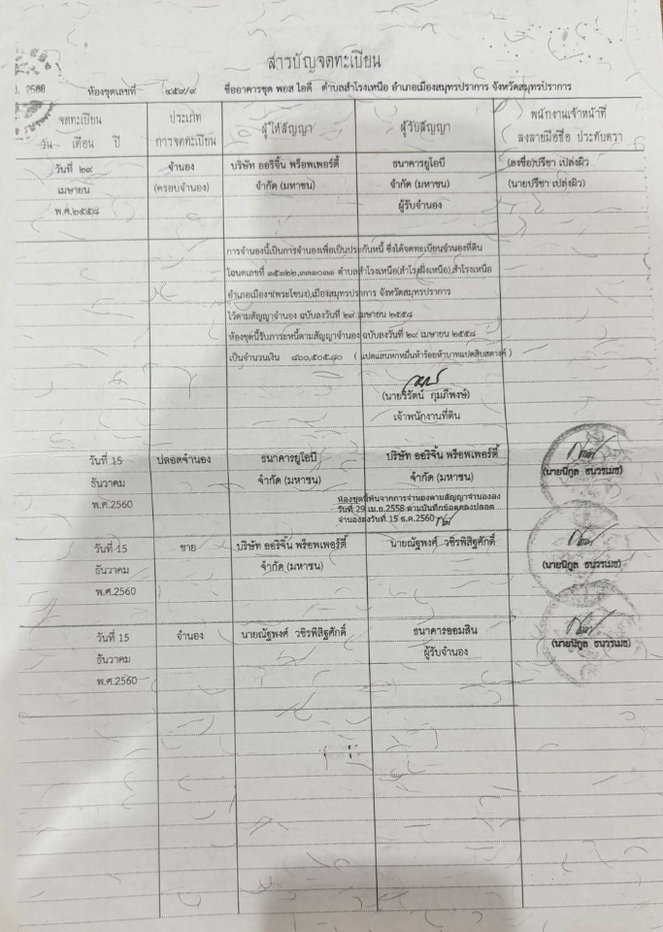 สารบัญจดทะเบียน
ห้องชุดเลขที่ ๔๕๙/๙ ชื่ออาคารชุด พอส ไอดี ตำบลสำโรงเหนือ อำเภอเมืองสมุทรปราการ จังหวัดสมุทรปราการ
จดทะเบียน ประเภท ผู้ให้สัญญา ผู้รับสัญญา พนักงานเจ้าหน้าที่
วัน เดือน ปี การจดทะเบียน ลงลายมือชื่อ ประทับตรา
วันที่ ๒๙ จำนอง บริษัท ออริจิ้น พร็อพเพอร์ตี้ ธนาคารยูโอบี (ลงชื่อ)ปรีชา เปล่งผิว
เมษายน (ครอบจำนอง) จำกัด (มหาชน) จำกัด (มหาชน) (นายปรีชา เปล่งผิว)
พ.ศ.๒๕๕๘ ผู้รับจำนอง
การจำนองนี้เป็นการจำนองเพื่อเป็นประกันหนี้ ซึ่งได้จดทะเบียนจำนองที่ดิน
โฉนดเลขที่ ตำบลสำโรงเหนือ(สำโรงฝั่งเหนือ),สำโรงเหนือ
อำเภอเมืองฯ(พระโขนง),เมืองสมุทรปราการ จังหวัดสมุทรปราการ
ไว้ตามสัญญาจำนอง ฉบับลงวันที่ ๒๙ เมษายน ๒๕๕๘
ห้องชุดนี้รับภาระหนี้ตามสัญญาจำนอง ฉบับลงวันที่ ๒๙ เมษายน ๒๕๕๘
เป็นจำนวนเงิน ๘๖๐,๕๐๕.๘๐ ( แปดแสนหกหมื่นห้าร้อยห้าบาทแปดสิบสตางค์ )
(นายวิรัตน์ กุมภีพงษ์)
เจ้าพนักงานที่ดิน
วันที่ 15 ปลอดจำนอง ธนาคารยูโอบี บริษัท ออริจิ้น พร็อพเพอร์ตี้
ธันวาคม จำกัด (มหาชน) จำกัด (มหาชน) (นายนิกูล ธนวรเมธ)
พ.ศ.2560 ห้องชุดนี้พ้นจากการจำนองตามสัญญาจำนองลง
วันที่ 29 เม.ย.2558 ตามบันทึกข้อตกลงปลอด
จำนองลงวันที่ 15 ธ.ค.2560
วันที่ 15 ขาย บริษัท ออริจิ้น พร็อพเพอร์ตี้ นายณัฐพงศ์ วชิรพิสิฐศักดิ์
ธันวาคม จำกัด (มหาชน) (นายนิกูล ธนวรเมธ)
พ.ศ.2560
วันที่ 15 จำนอง นายณัฐพงศ์ วชิรพิสิฐศักดิ์ ธนาคารออมสิน (นายนิกูล ธนวรเมธ)
ธันวาคม ผู้รับจำนอง
พ.ศ.2560